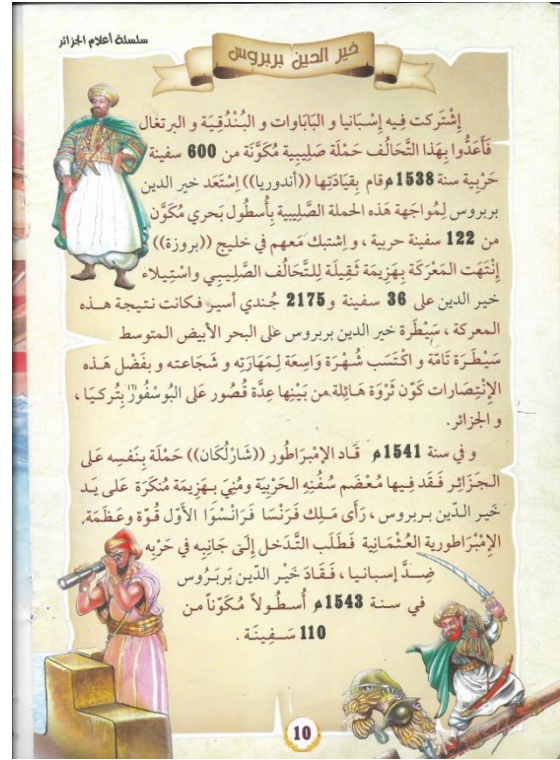 سلسلة أعلام الجزائر
خير الدين بربروس
إشْتَركت فِيه إسْبَانيا و البَابَاوات و البُنْدُقِيَة و البرتغال
فَأَعَدُّوا بِهَذا التَّحَالُف حَمْلَة صَلِيبِية مُكَوَّنَة من 600 سفينة
حَرْبِية سنة 1538م قام بِقِيَادَتِها ((أندوريا)) اِسْتَعَد خير الدين
بربروس لِمُواجهَة هَذه الحملة الصَّلِيبِية بِأُسطُول بَحري مُكَوَّن
من 122 سفينة حربية ، و إشتبك مَعهم في خليج ((بروزة))
إنْتَهَت المَعْرَكَة بِهَزِيمَة ثَقِيلَة لِلتَّحَالُف الصَّلِيـبِـي واسْتِيلاء
خير الدين على 36 سفينة و 2175 جُندي أسير فكانت نتيجة هـذه
المعركة ، سَيْطَرة خير الدين بربروس على البحر الأبيض المتوسط
سَيْطَـرَة تَامَّة و اكْتَسَب شُـهْـرَة وَاسِعَة لِمَهَارَتِه و شَجَاعته و بفَضْل هَـذه
الإنْتِصَارات كَوّن ثَرْوَة هَـائِلة من بَيْنِها عِدَّة قُصُور عَلى البُوسْفُورْ بِتُركـيَـا ،
و الجزائر.
و في سنة 1541م قَـاد الإمْبَرَاطُور ((شَارْلُكَان)) حَمْلَة بِنَفسِه عَلى
الـجَزَائِر فَـقَـد فِيـها مُعْـضَم سُفُنِهِ الحَرْبِيَة ومُنِيَ بـهَزِيمَة مُنكَرَة عَلى يَـد
خَير الـدّين بـربروس ، رَأى مَـلِك فَرَنْسَا فَرَانْسْوَا الأَوّل قُوّة وعَظَمَة
الإمْبَرَاطورية العُـثْمَـانِية فَطَلَب التَّدَخل إلَـى جَانِبِه في حَرْبِه
ضِـدَّ إسبانيـا ، فَـقَـادَ خَيْـر الدّين بَربَـرُوس
في سـنة 1543م أُسطُـولاً مُكَوّناً مـن
110 سَـفِينَة .
10